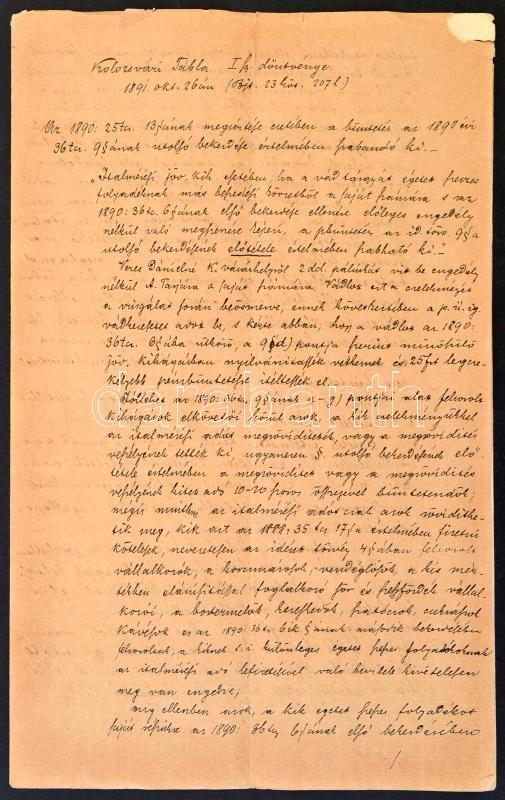 Kolozsvári Tábla I B. döntvénye.
1891 okt. 26án (Bjt. 23 köt. 207 l.)
Az 1890: 25 tcz. 13 §ának megsértése esetében a büntetés az 1890 évi
36 tcz. 9 §ának utolsó bekezdése értelmében szabandó ki. –
"Italmérési jöv. kih. esetében, ha a vád tárgyát égetett szeszes
folyadéknak más beszedési körzetből a saját számára s az
1890: 36 tcz. 6 §ának első bekezdése ellenére előleges engedély
nélkül való megszerzése képezi, a pbüntetés az id. törv. 9 § a
utolsó bekezdésének előtétele értelmében szabható ki."
Veres Dánielné K. vásárhelyről 2 dcl. pálinkát vitt be engedély
nélkül A. Torjára a saját számára. Vádlott ezt a cselekményét
a vizsgálat során beösmerve, ennek következtében a p. ü. ig.
vádkeresetet adott be, s kérte abban, hogy a vádlott az 1890:
36 tcz. 6 §ába ütköző, a 9 § d) pontja szerint minősülő
jöv. kihágásban nyilvánítassék vétkesnek és 25 frt legcse-
kélyebb pénzbüntetésre ítéltessék el.
Jóllehet az 1890: 36 tcz. 9 §ának a–g) pontjai alatt felsorolt
kihágások elkövetői közül azok, a kik cselekményükkel
az italmérési adót megrövidítették, vagy a megrövidítés
veszélyének tették ki, ugyanezen §. utolsó bekezdésének elő-
tétele értelmében a megrövidített vagy a megrövidítés
veszélyének kitett adó 10–20 szoros összegével büntetendők;
mégis minthogy az italmérési adót csak azok rövidíthe-
tik meg, kik azt az 1888: 35 tcz. 17 § a értelmében fizetni
kötelesek, nevezetesen az idézett törvény 4 §ában felsorolt
vállalkozók, a korcsmárosok, vendéglősök, a kis mér-
tékben elárúsítással foglalkozó sör és szeszfőzdék vállal-
kozói, a bortermelők, kereskedők, szatócsok, cukrászok
kávésok és az 1890: 36 tcz. 6ik §ának második bekezdésében
felsoroltak, a kiknek t. i. különleges égetett szeszes folyadékoknak
az italmérési adó lefizetésével való bevitele kivételesen
meg van engedve;
míg ellenben azok, a kik égetett szeszes folyadékot
saját részükre az 1890: 36 tcz. 6 §ának első bekezdésében
darabanth